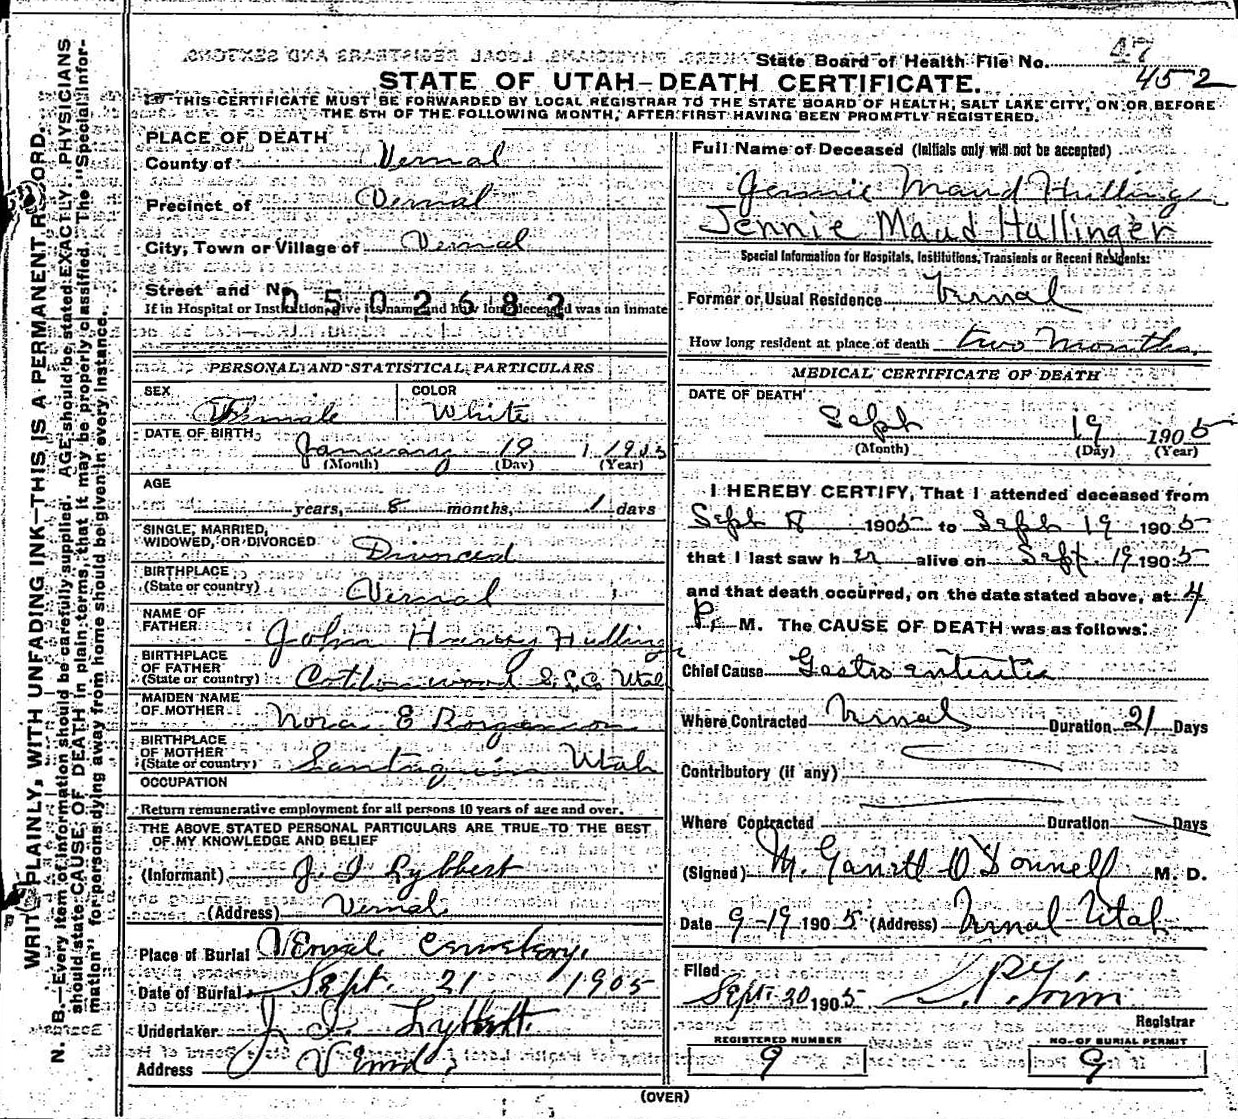 State Board of Health File No. 47
452
STATE OF UTAH—DEATH CERTIFICATE.
THIS CERTIFICATE MUST BE FORWARDED BY LOCAL REGISTRAR TO THE STATE BOARD OF HEALTH, SALT LAKE CITY, ON OR BEFORE
THE 5TH OF THE FOLLOWING MONTH, AFTER FIRST HAVING BEEN PROMPTLY REGISTERED.
WRITE PLAINLY, WITH UNFADING INK—THIS IS A PERMANENT RECORD.
N. B.—Every item of information should be carefully supplied. AGE should be stated EXACTLY. PHYSICIANS
should state CAUSE OF DEATH in plain terms, that it may be properly classified. The "Special Infor-
mation" for persons dying away from home should be given in every instance.
PLACE OF DEATH
County of Vernal
Precinct of Vernal
City, Town or Village of Vernal
Street and No.
0502682
If in Hospital or Institution, give its name and how long deceased was an inmate
PERSONAL AND STATISTICAL PARTICULARS
SEX Female
COLOR White
DATE OF BIRTH January 19 1905
(Month) (Day) (Year)
AGE
years, 8 months, 1 days
SINGLE, MARRIED,
WIDOWED, OR DIVORCED Divorced
BIRTHPLACE
(State or country) Vernal
NAME OF
FATHER John Harvy Hulling
BIRTHPLACE
OF FATHER
(State or country) Cottonwood S. L. Co Utah
MAIDEN NAME
OF MOTHER Nora E
BIRTHPLACE
OF MOTHER
(State or country) Santaquin Utah
OCCUPATION
Return remunerative employment for all persons 10 years of age and over.
THE ABOVE STATED PERSONAL PARTICULARS ARE TRUE TO THE BEST
OF MY KNOWLEDGE AND BELIEF
(Informant) J. I Lybbert
(Address) Vernal.
Place of Burial Vernal Cemetery.
Date of Burial Sept. 21 1905
Undertaker J. I. Lybbert.
Address Vernal.
Full Name of Deceased (Initials only will not be accepted)
Jennie Maud Hulling
Jennie Maud Hullinger
Special Information for Hospitals, Institutions, Transients or Recent Residents:
Former or Usual Residence Vernal
How long resident at place of death two months
MEDICAL CERTIFICATE OF DEATH
DATE OF DEATH
Seph 19 1905
(Month) (Day) (Year)
I HEREBY CERTIFY, That I attended deceased from
Seph 8 1905 to Seph 19 1905
that I last saw her alive on Sept. 19 1905
and that death occurred, on the date stated above, at 4
P. M. The CAUSE OF DEATH was as follows:
Chief Cause Gastro enteritis
Where Contracted Vernal Duration 21 Days
Contributory (if any)
Where Contracted Duration Days
(Signed) M. Garrett O'Donnell M. D.
Date 9-19 1905 (Address) Vernal Utah
Filed
Sept. 20 1905
Registrar
REGISTERED NUMBER
9
NO. OF BURIAL PERMIT
9
(OVER)